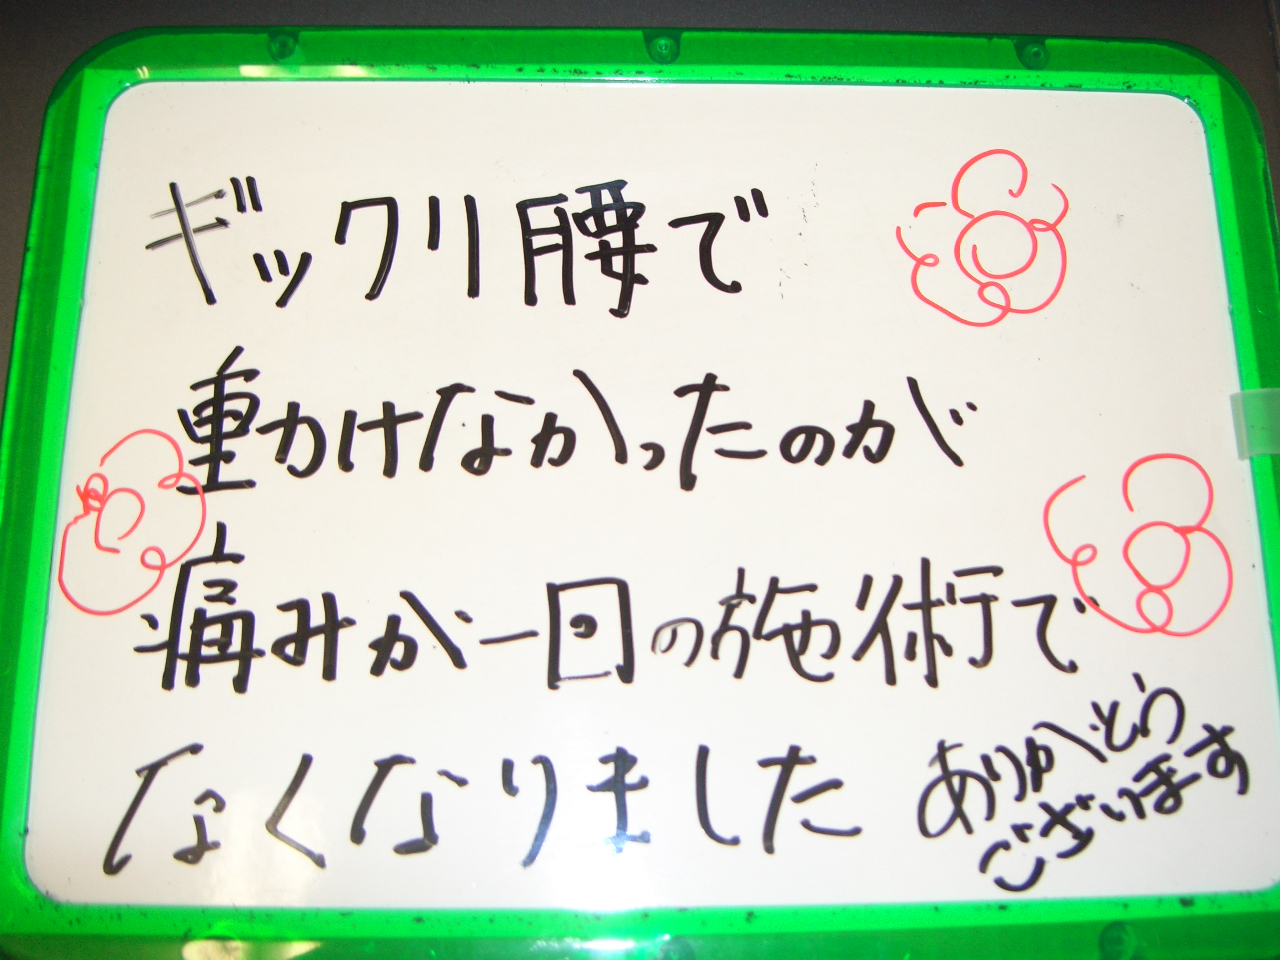 ギックリ腰で
動けなかったのが
痛みが一回の施術で
なくなりました
ありがとう
ございます